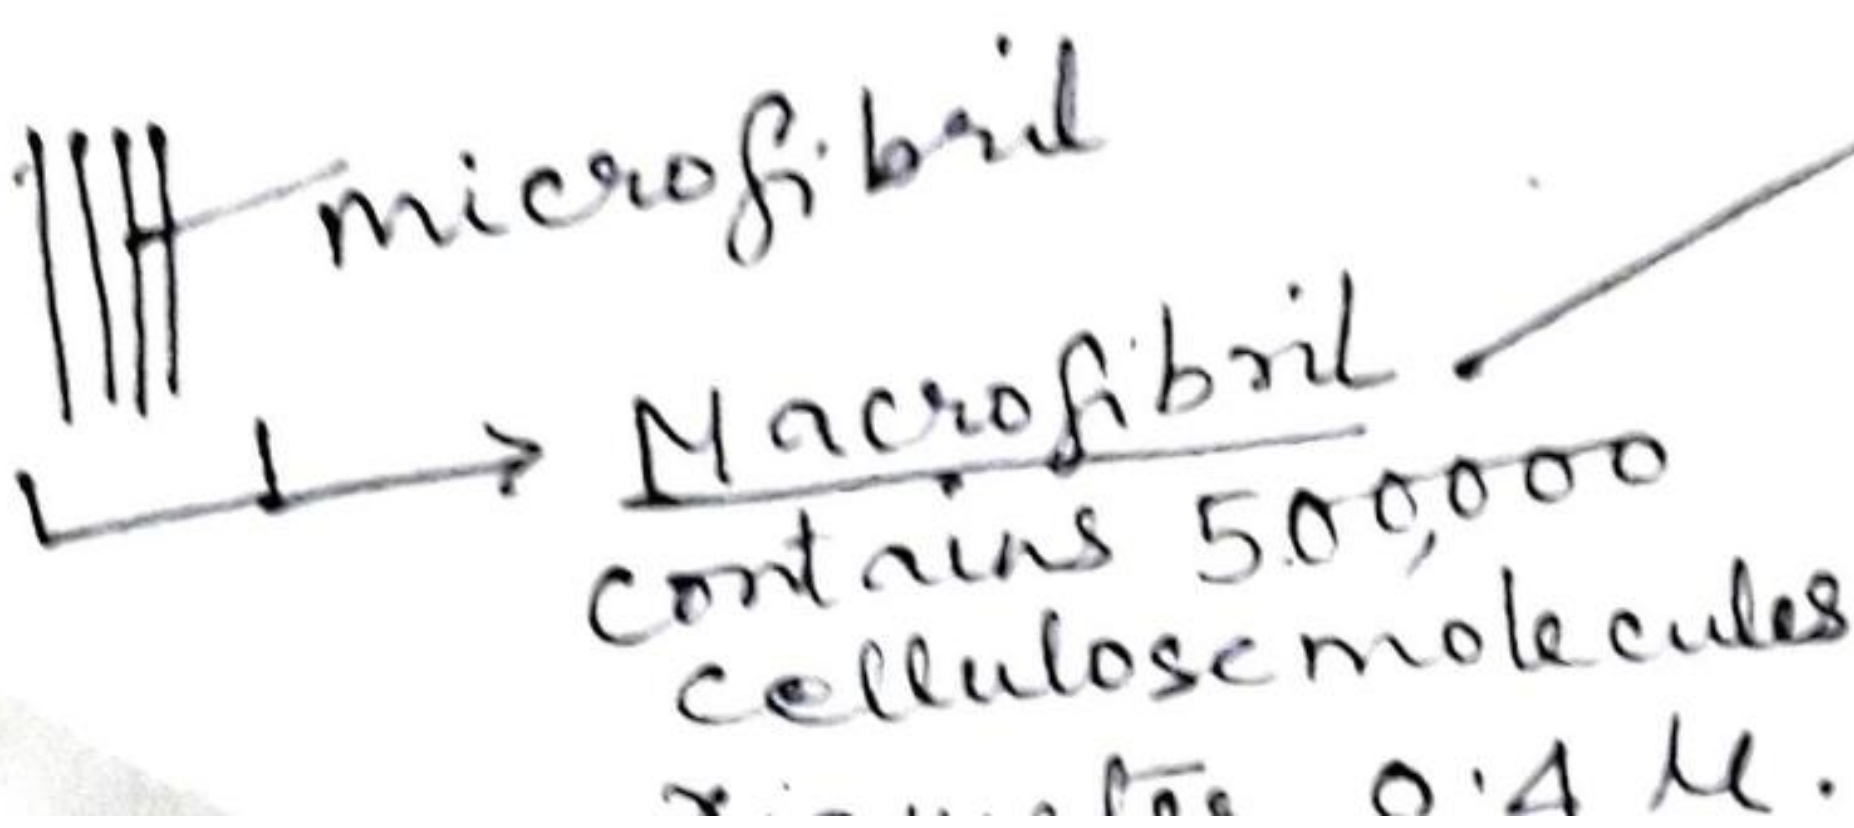 microfibril
Macrofibril
contains 500,000
cellulose molecules
0.4 μ.